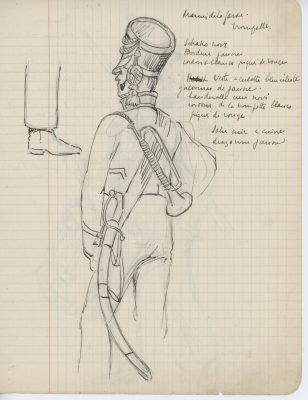 Marins de la garde.
Trompette.
Schako noir
Bordure jaune
cordon blancs piqué de rouge
Veste + culotte bleu céleste
galonnées de jaune.
banderolle cuir noir
cordon de la trompette blancs
piqué de rouge
Sabre cuir + cuivre
dragonne jaune